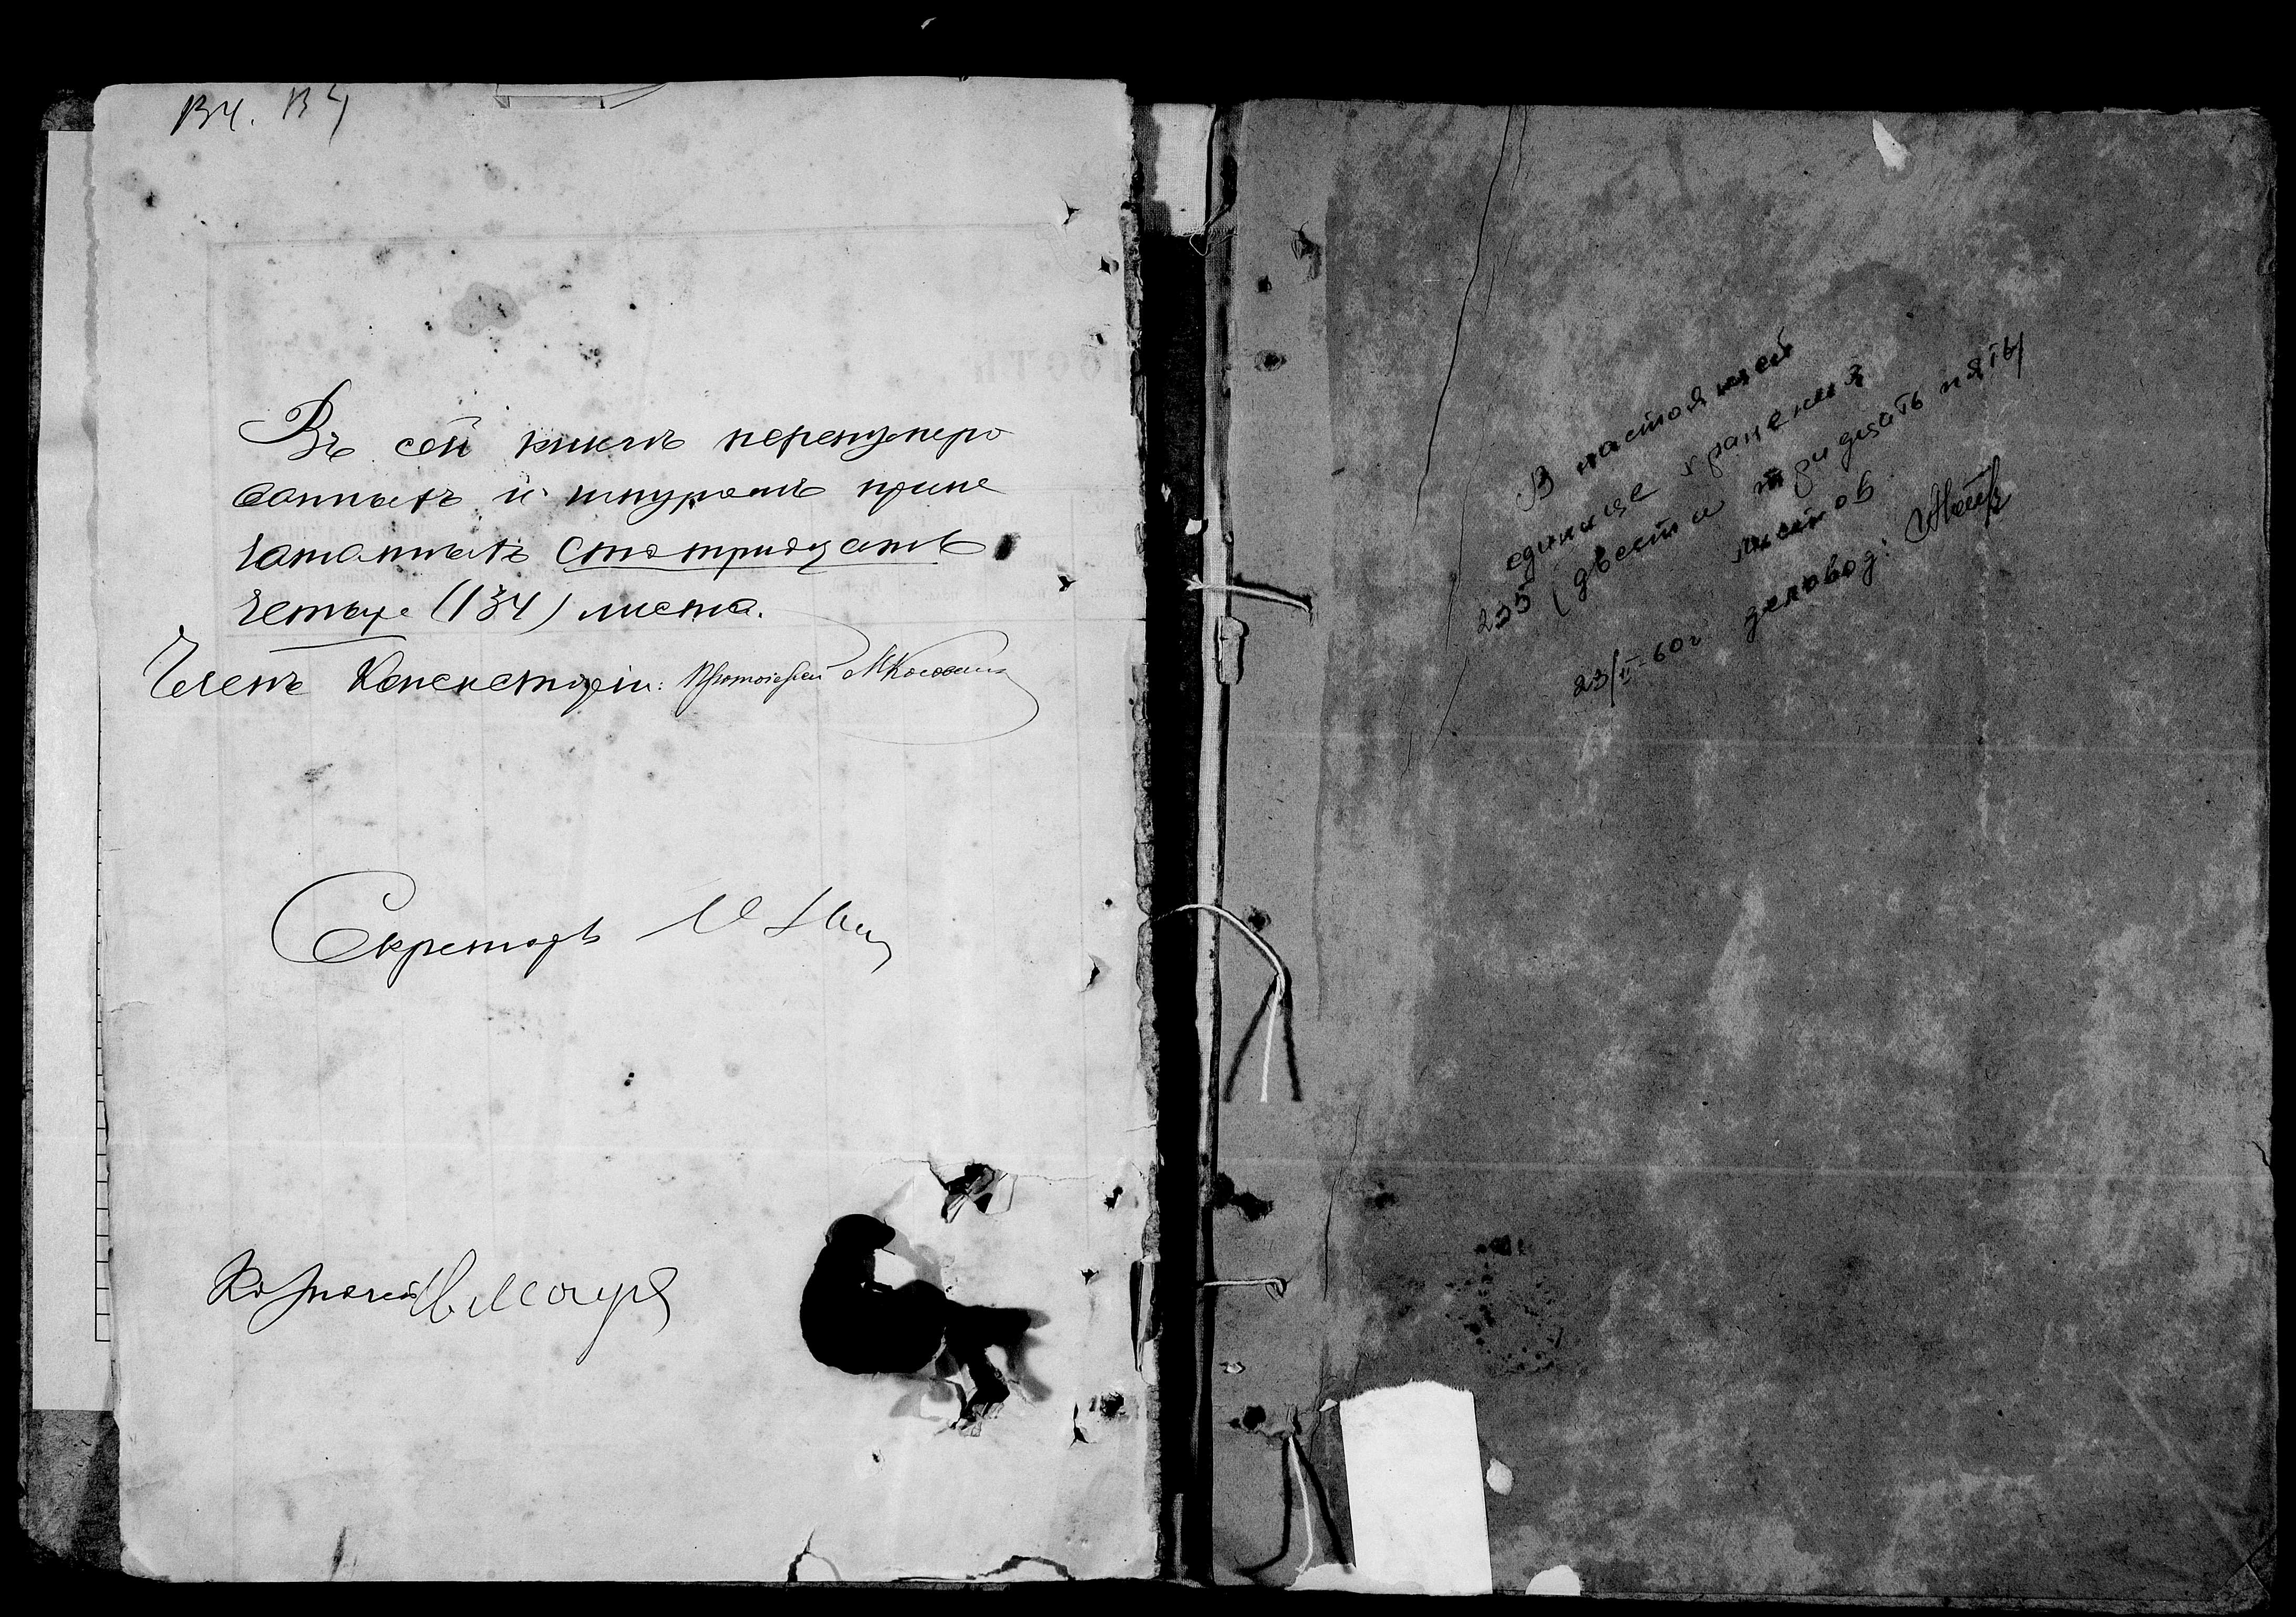 Въ сей книгѣ перенумеро
ванныхъ и шнуромъ припе
чатанныхъ сто тридцать
четыре (134) листа.
Членъ Консисторіи: Протоіерей
Секретарь
В настоящей
единице хранения
235 (двести тридцать пять)
листов
23/II-60 г деловод: